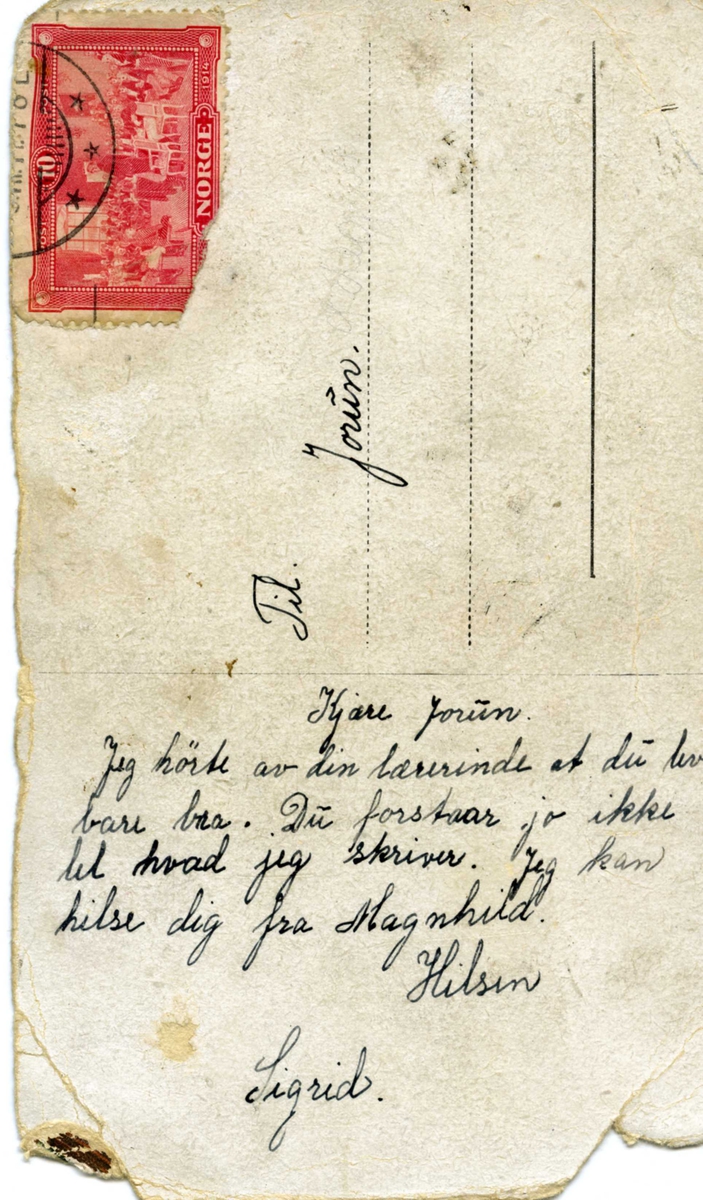 POST
10
NORGE
1914
Til.
Jorūn.
Kjære Jorūn.
Jeg hörte av din lærerinde at dū lev
bare bra. Dū forstaar jo ikke
hvad jeg skriver. Jeg kan
hilse dig fra Magnhild.
Hilsen
Sigrid.